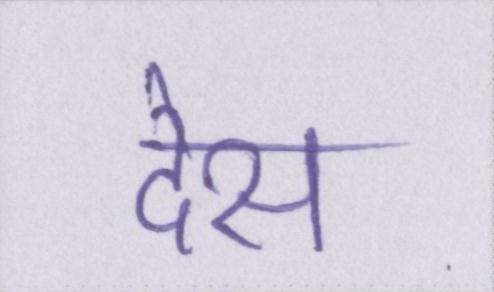 देस